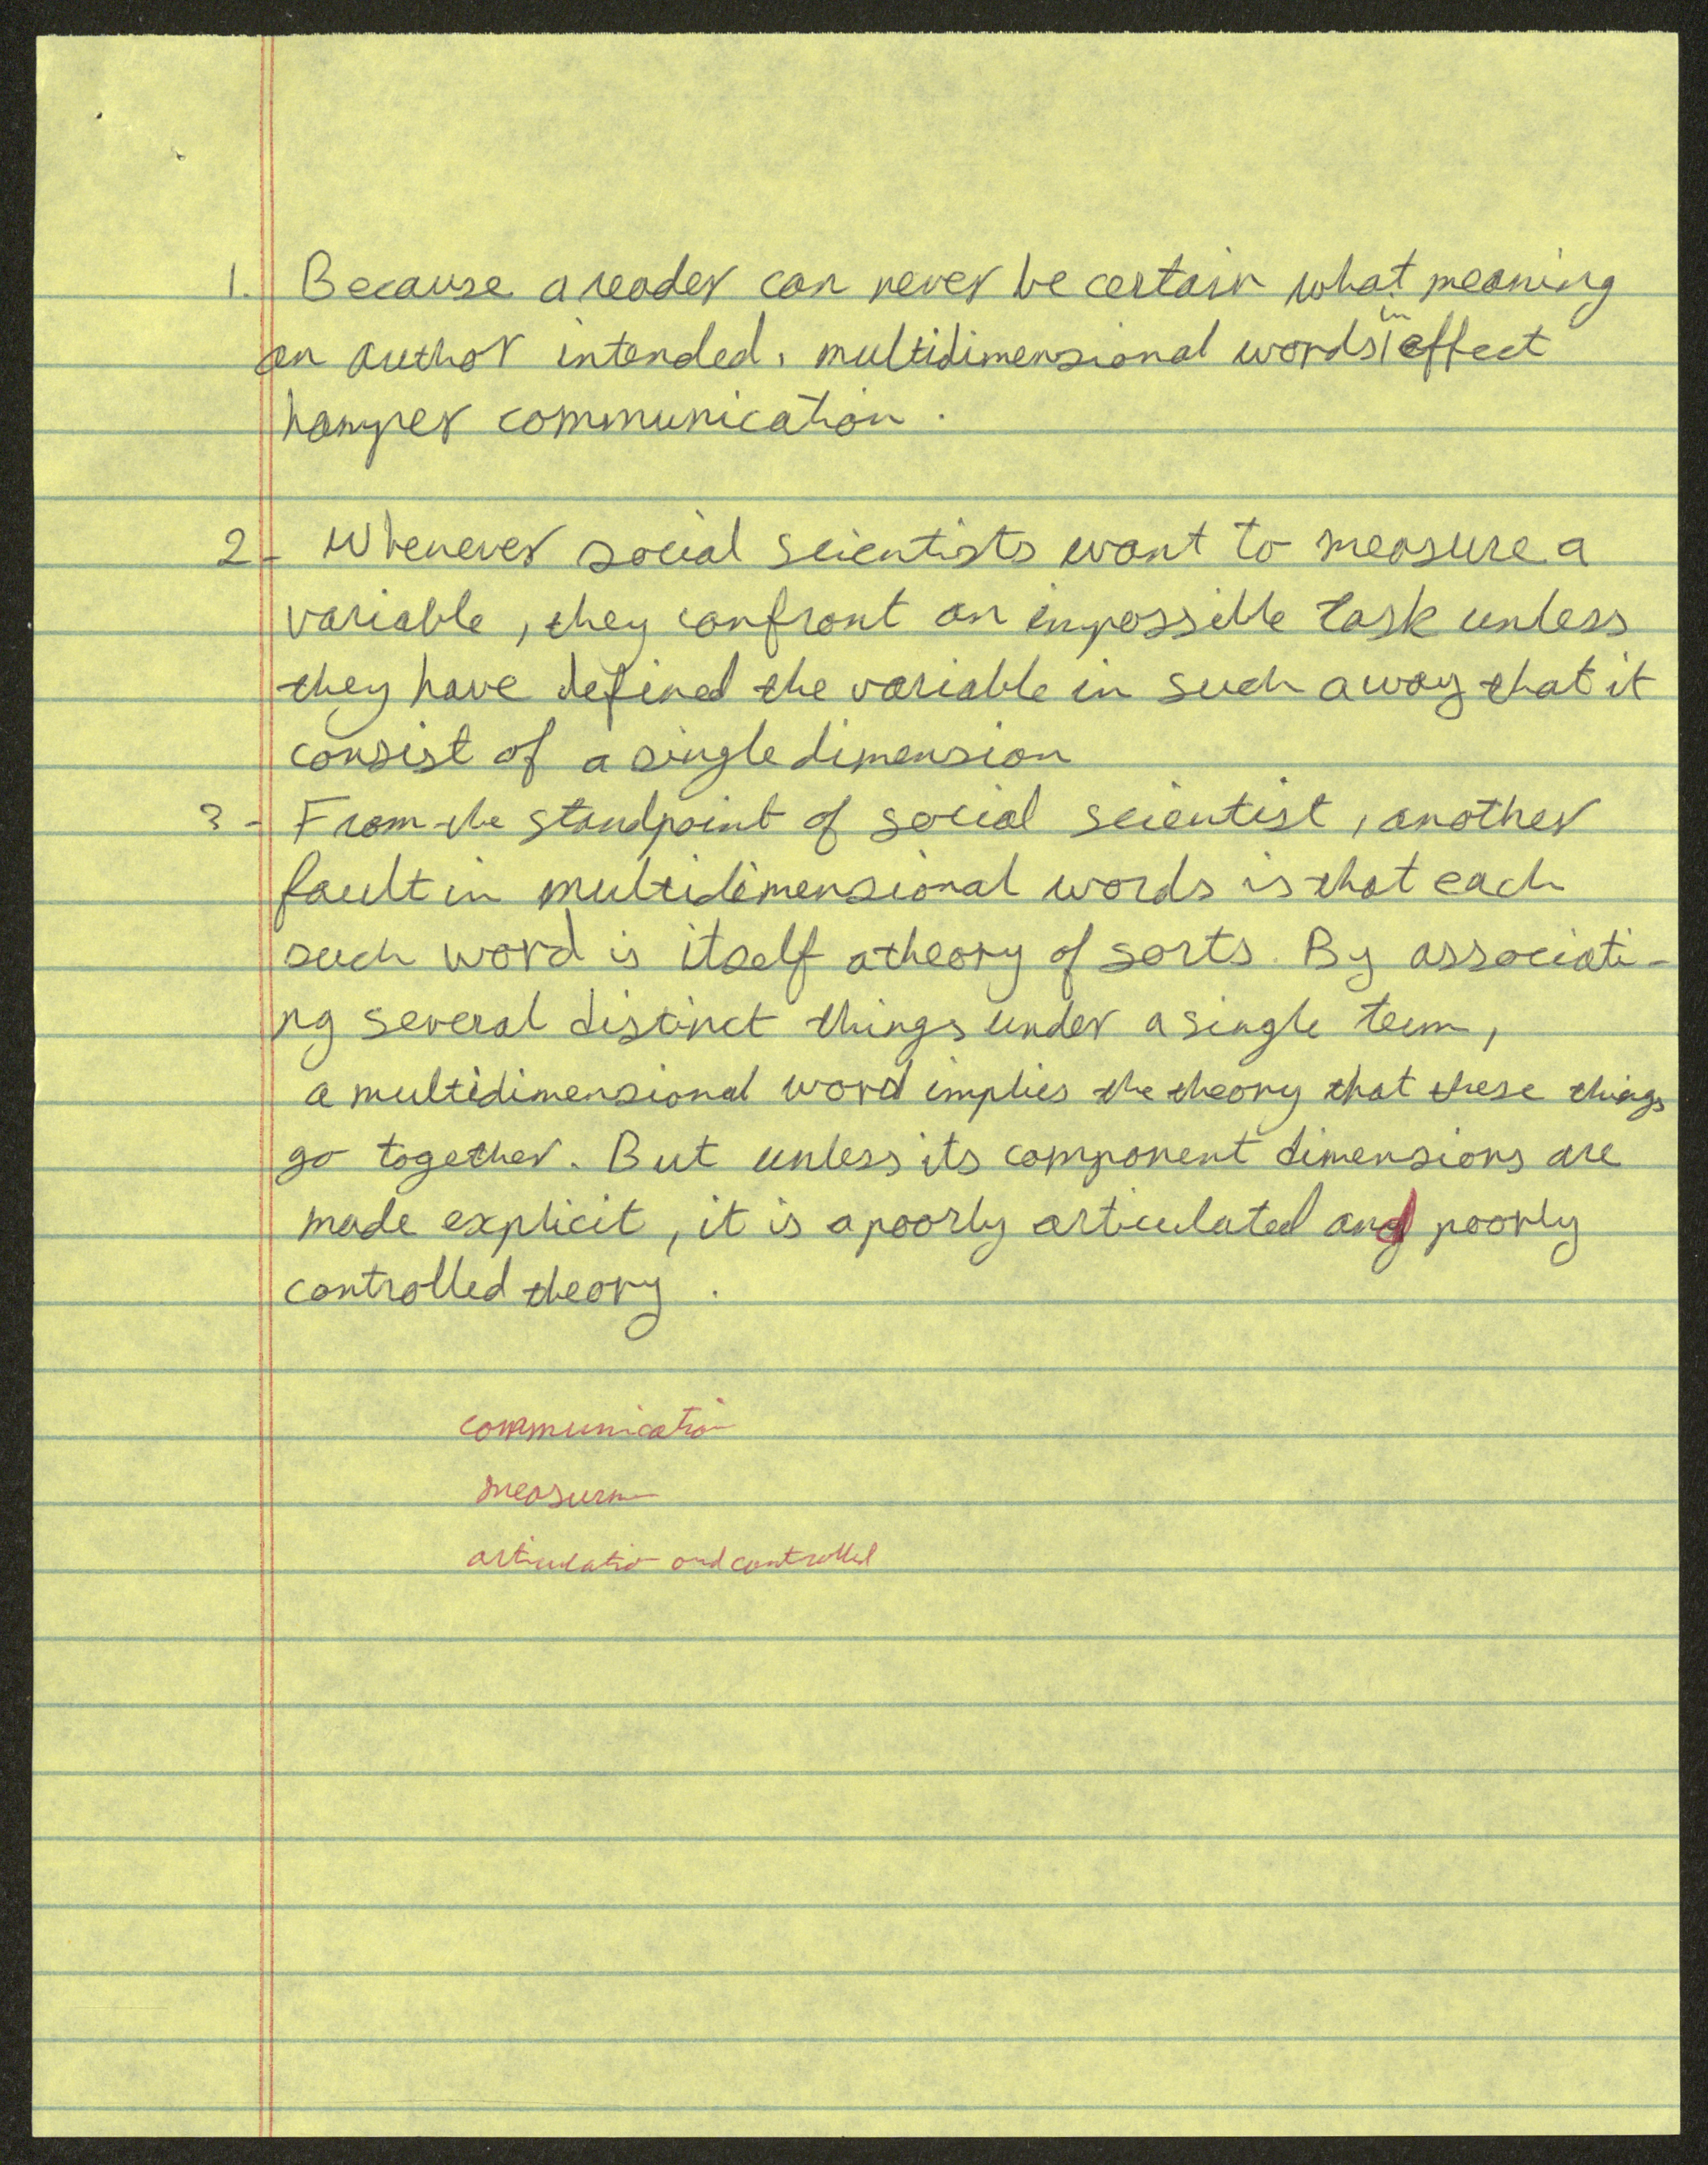 1. Because a reader can never be certain what meaning
an author intended, multidimensional words in effect
hamper communication.
2- Whenever social scientists want to measure a
variable, they confront an impossible task unless
they have defined the variable in such a way that it
consist of a single dimension
3- From the standpoint of social scientist, another
fault in multidimensional words is that each
such word is itself a theory of sorts. By associati-
ng several distinct things under a single term,
a multidimensional word implies the theory that these things
go together. But unless its component dimensions are
made explicit, it is a poorly articulated and poorly
controlled theory.
communication
measurm
articulatio and controlled